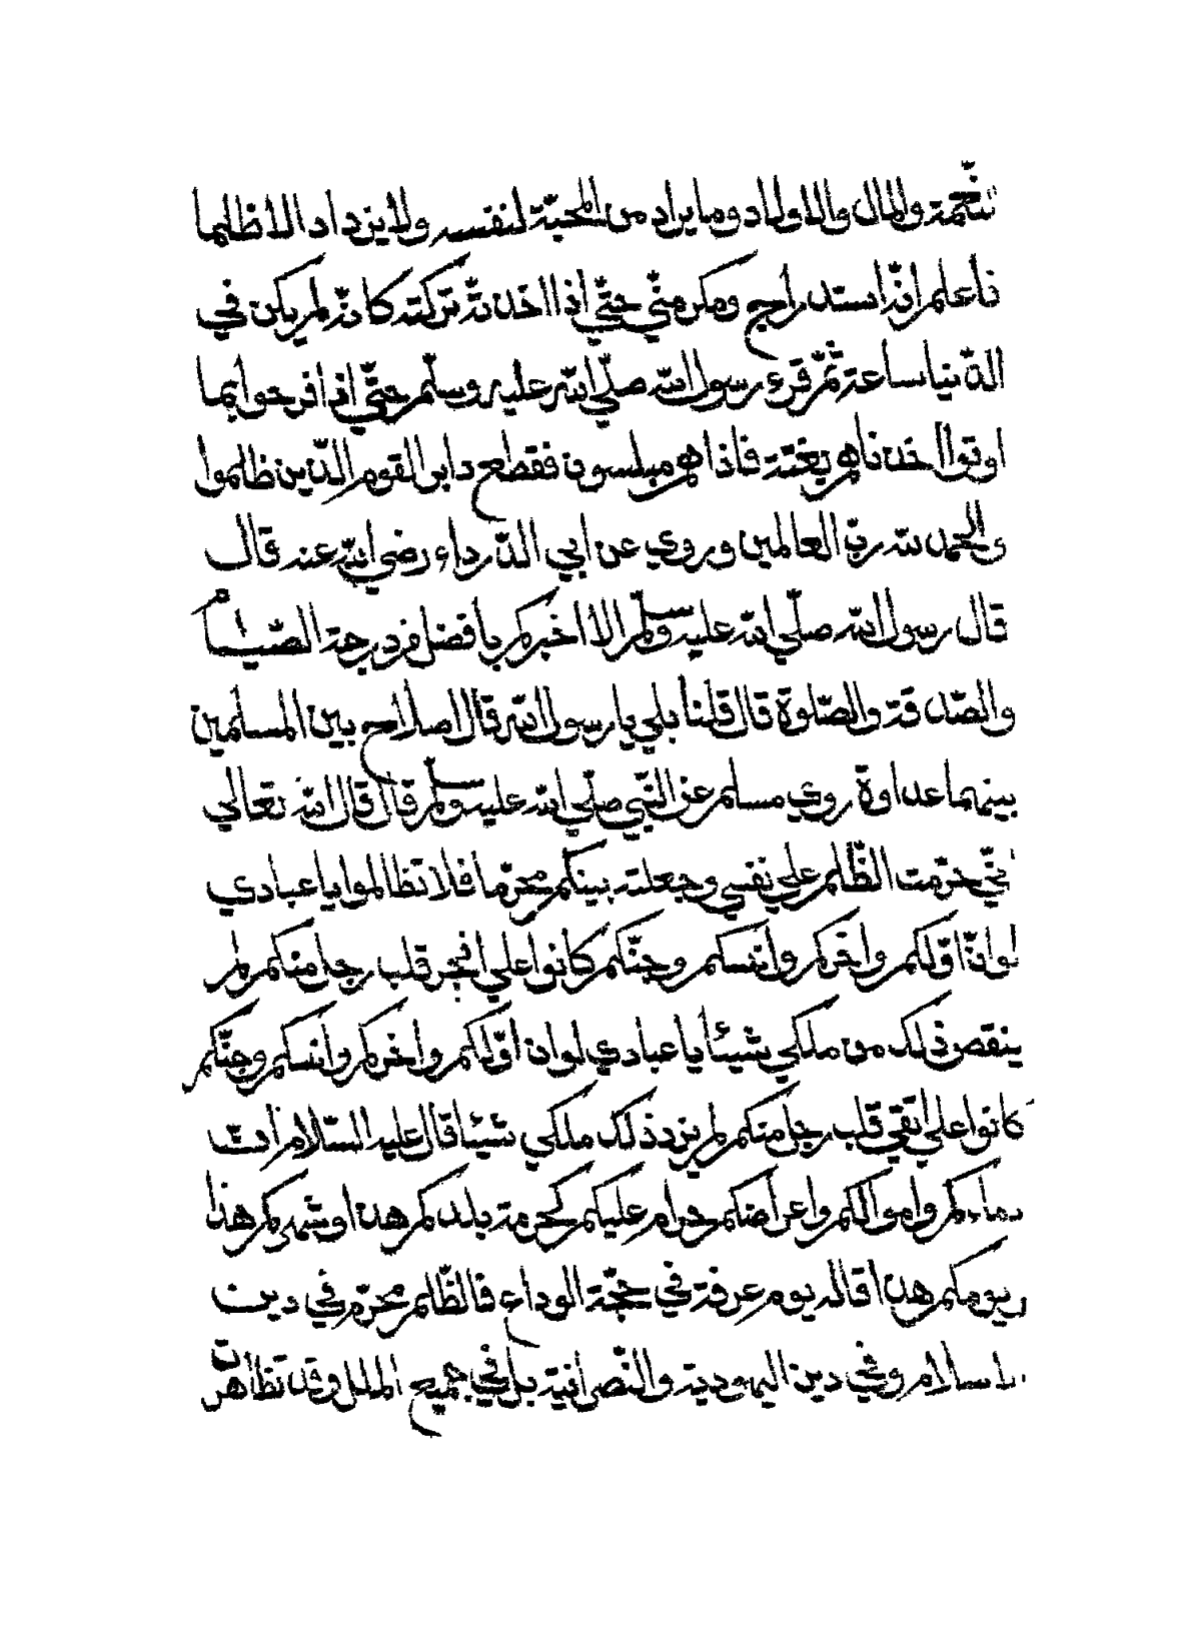 والمال والاولاد وما يراد من المحبّة لنفسه ولا يزداد الا ظلما
فاعلم انّه استدراج ومكر منّي حتّي اذا اخذته تركته كانّه لم يكن في
الدّنيا ساعة ثمّ قرء رسول الله صلّي الله عليه وسلّم حتّي اذا فرحوا بما
اوتوا اخذناهم بغتة فاذا هم مبلسون فقطع دابر القوم الّذين ظلموا
والحمد لله ربّ العالمين وروي عن ابي الدّرداء رضي الله عنه قال
قال رسول الله صلّي الله عليه وسلّم الا اخبركم بافضل من درجة الصّيام
والصّدقة والصّلوة قال قلنا بلي يا رسول الله قال اصلاح بين المسلمين
بينهما عداوة روي مسلم عن النّبي صلّي الله عليه وسلّم قال قال الله تعالي
انّي حرّمت الظّلم علي نفسي وجعلته بينكم محرّما فلا تظالموا يا عبادي
لو انّ اوّلكم واخركم وانسكم وجنّكم كانوا علي افجر قلب رجل منكم لم
ينقص ذلك من ملكي شيئا يا عبادي لو ان اوّلكم واخركم وانسكم وجنّكم
كانوا علي اتقي قلب رجل منكم لم يزد ذلك ملكي شيئا قال عليه السّلام انّ
دماءكم واموالكم واعراضكم حرام عليكم كحرمة بلدكم هذا وشهركم هذا
ويومكم هذا قاله يوم عرفة في حجّة الوداع فالظّلم محرّم في دين
الاسلام وفي دين اليهودية والنّصرانية بل في جميع الملل وقد تظاهرت